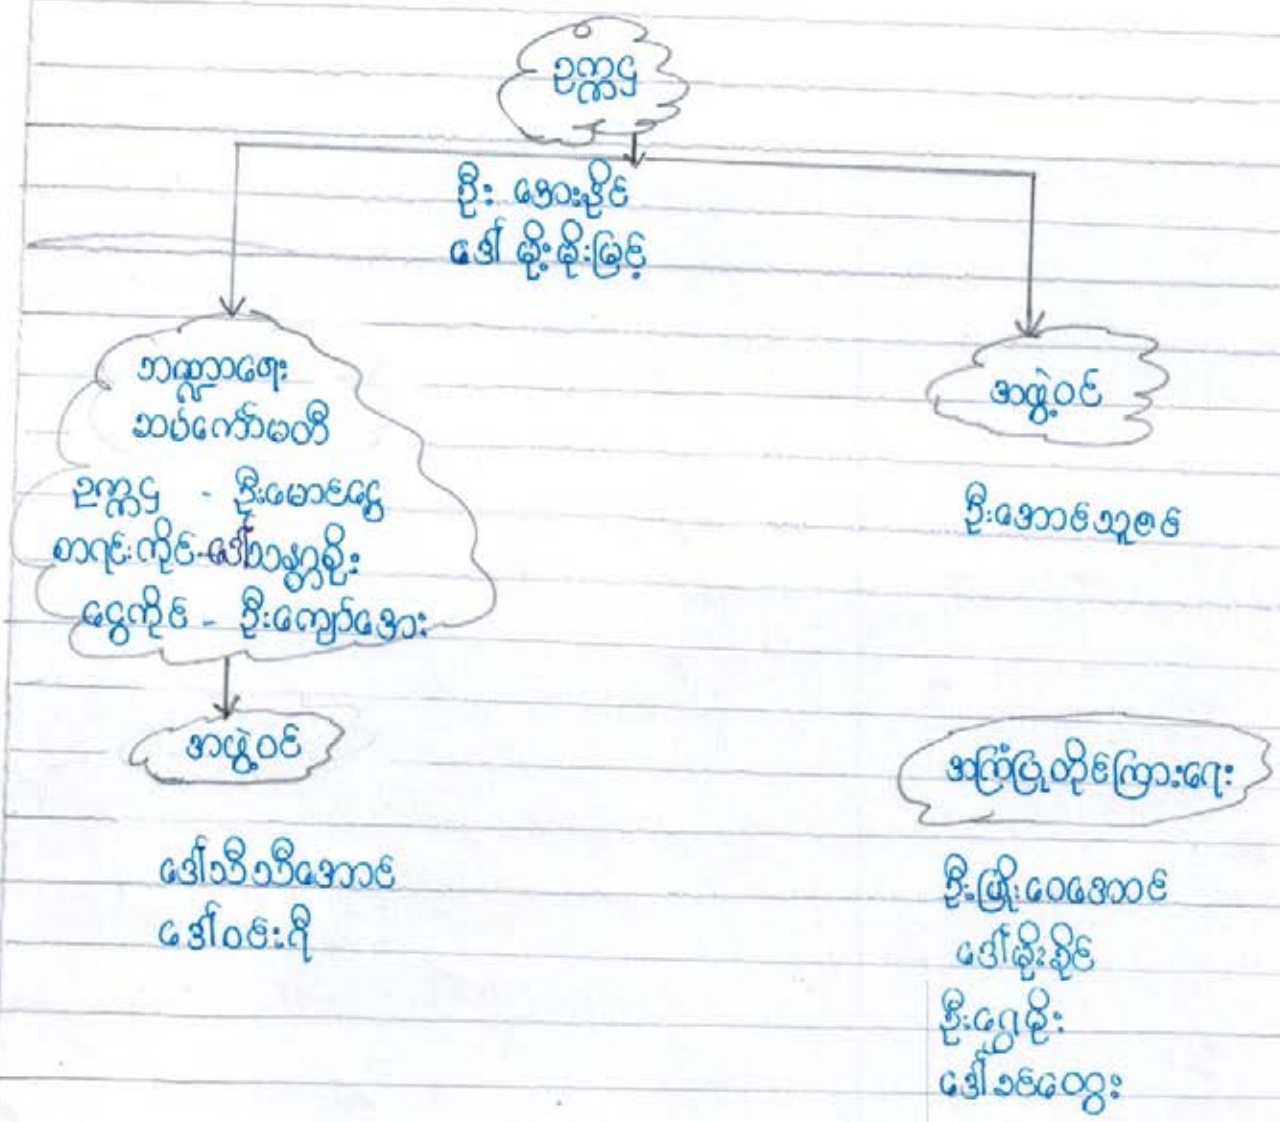 ဥက္ကဌ
ဦး အေးဒိုင်
ဒေါ် မို့မိုးမြင့်
ဘဏ္ဍာရေး
ဆပ်ကော်မတီ
ဥက္ကဌ - ဦးမောင်ငွေ
စာရင်းကိုင်-ဒေါ်သန္တာစိုး
ငွေကိုင် - ဦးကျော်အေး
အဖွဲ့ဝင်
ဦးအောင်သူဇင်
အဖွဲ့ဝင်
ဒေါ်သီသီအောင်
ဒေါ်ဝင်းရီ
အကြံပြုတိုင်ကြားရေး
ဦးဖြိုးဝေအောင်
ဒေါ်မိုးခိုင်
ဦးရွှေမိုး
ဒေါ်ခင်ထွေး